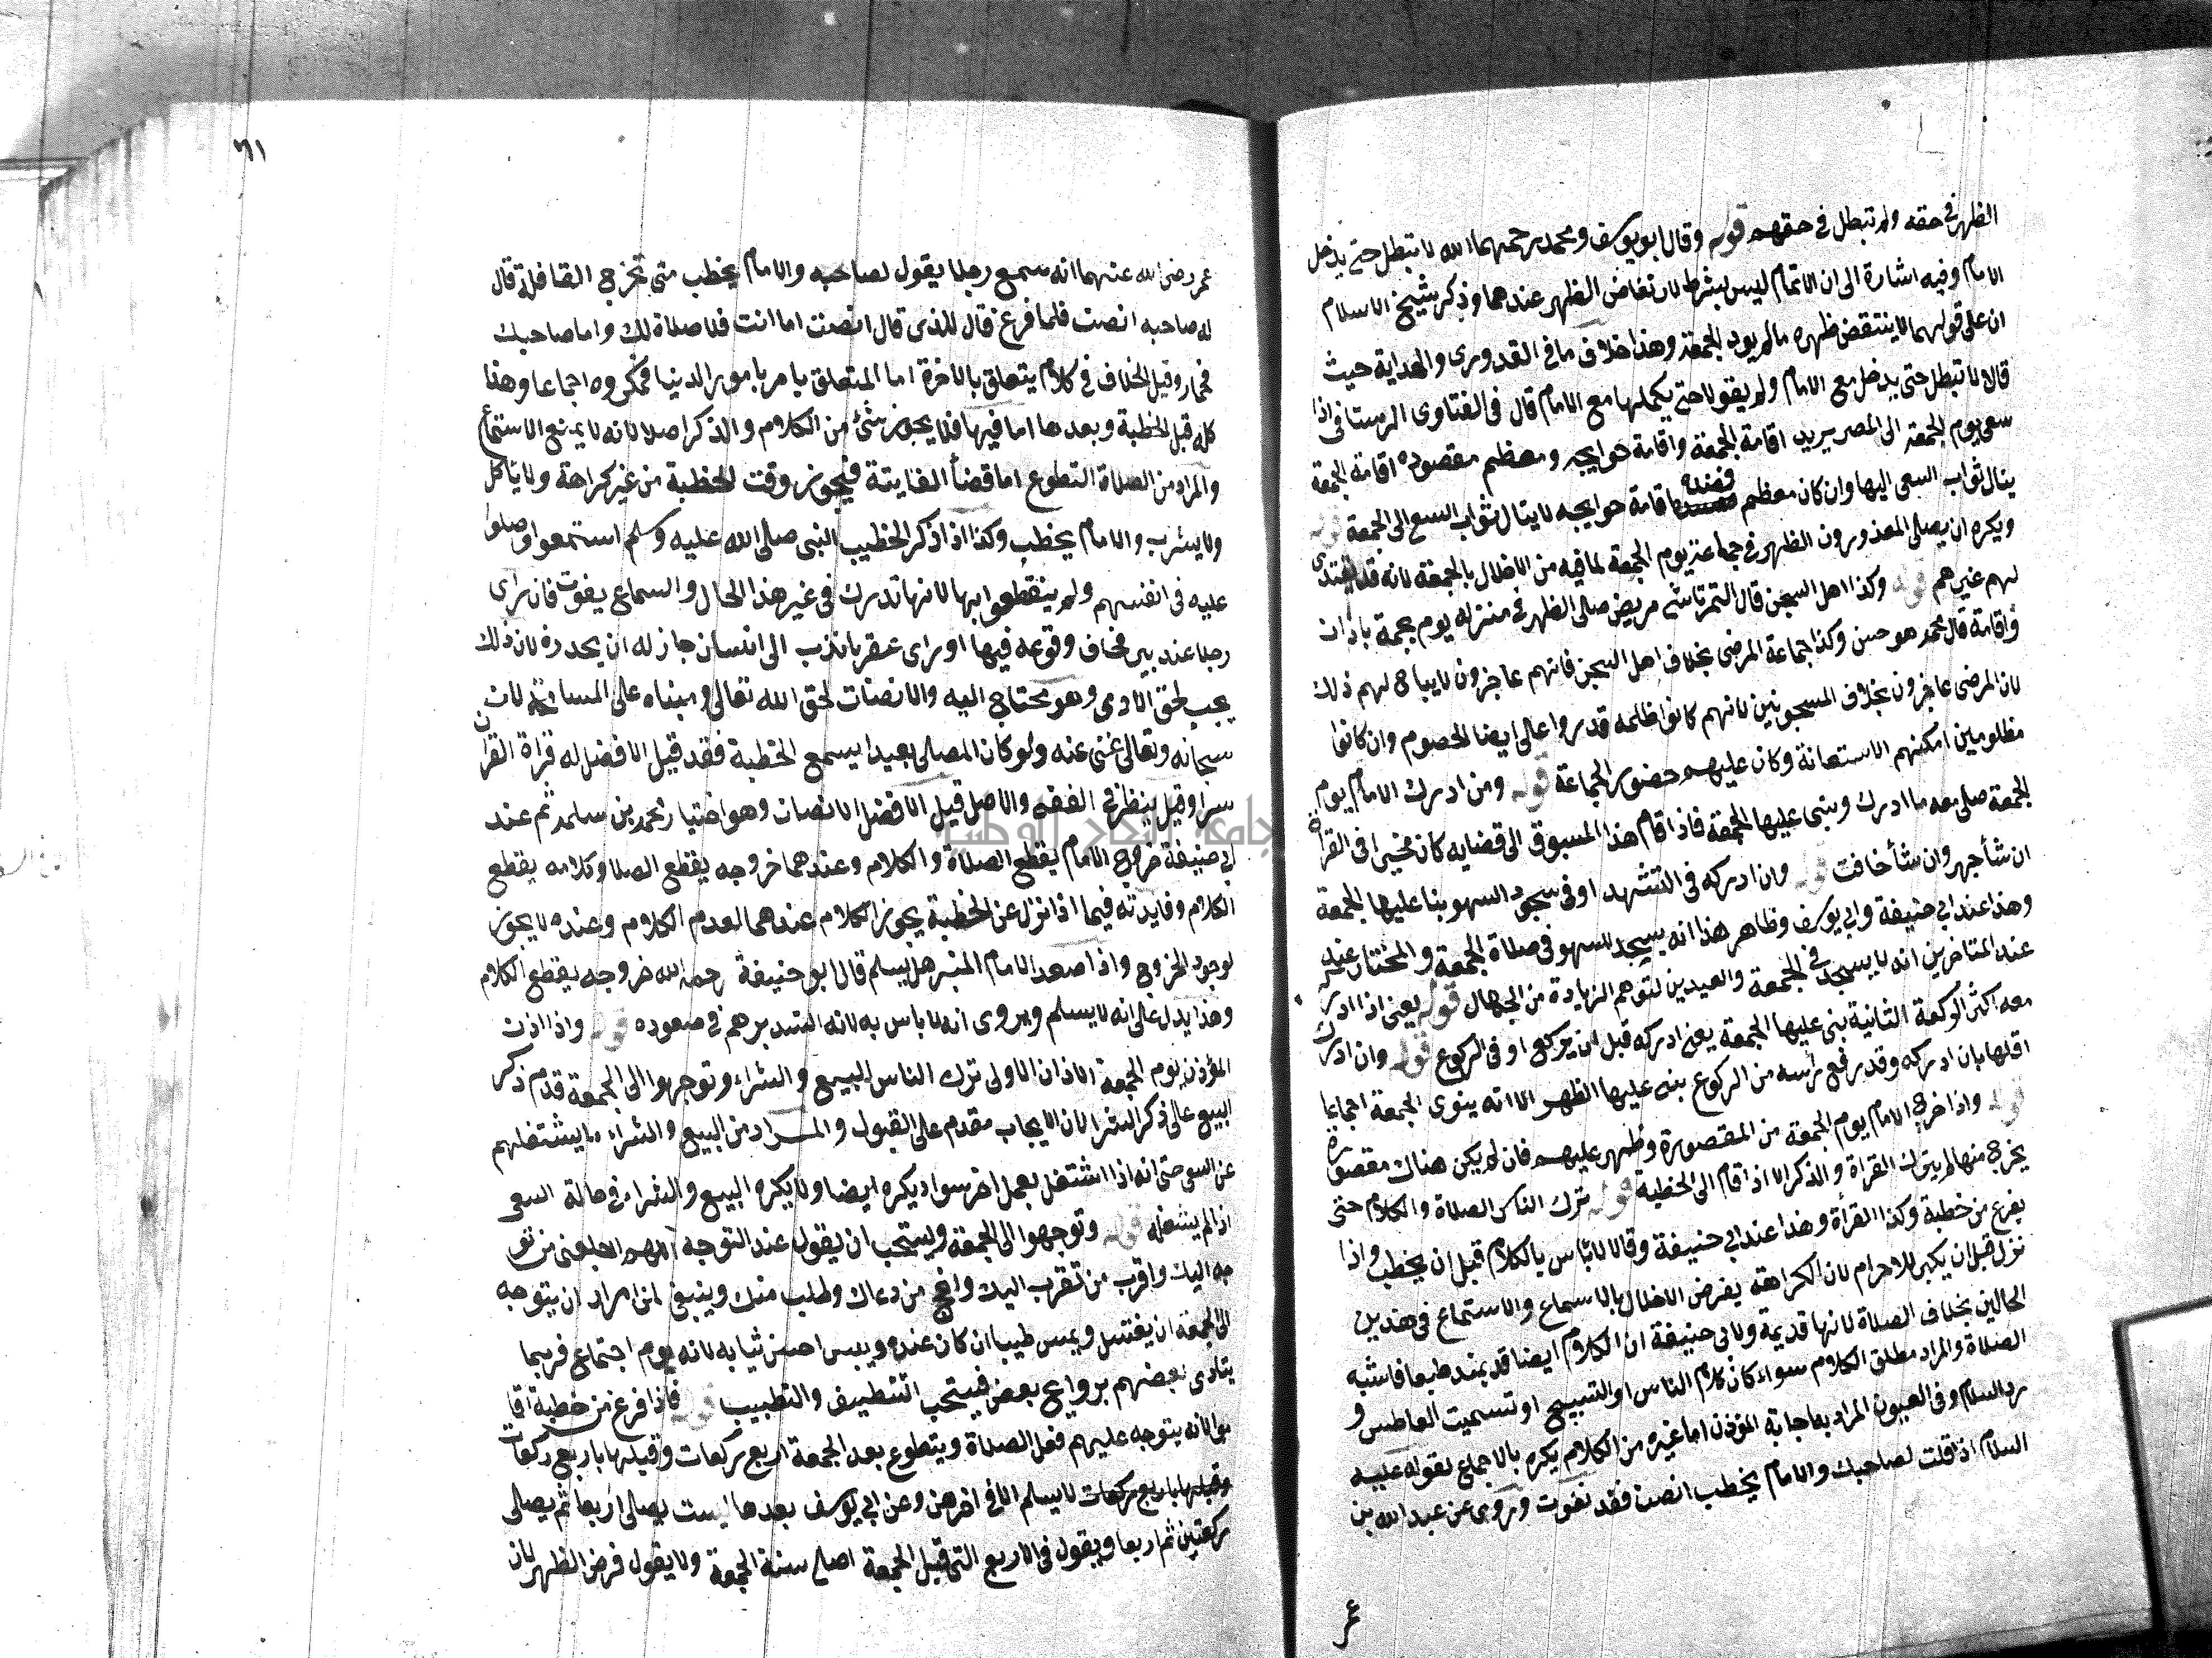 الظهر في حقه ولم تبطل في حقهم قوله وقال ابو يوسف ومحمد رحمهما الله لا تبطل حتى يدخل
الامام وفيه اشارة الى ان الاتمام ليس بشرط لارتفاض الظهر عندهما وذكر شيخ الاسلام
ان على قولهما لا ينتقض ظهره مالم يود الجمعة وهذا خلاف ما في القدورى والهداية حيث
قالا لا تبطل حتى يدخل مع الامام ولم يقولا حتى يكملها مع الامام قال في الفتاوى الرستاقى اذا
سعى يوم الجمعة الى المصر يريد اقامة الجمعة واقامة حوايجه ومعظم مقصوده اقامة الجمعة
ينال ثواب السعى اليها وان كان معظم قصده اقامة حوايجه لا ينال ثواب السعى الى الجمعة قوله
ويكره ان يصلى المعذورون الظهر في جماعة يوم الجمعة لما فيه من الاخلال بالجمعة لانه قد يقتدى
بهم غيرهم قوله وكذا اهل السجن قال التمرتاشى مريض صلى الظهر في منزله يوم جمعة باذان
واقامة قال محمد هو حسن وكذا جماعة المرضى بخلاف اهل السجن فانهم عاجزون لا يباح لهم ذلك
لان المرضى عاجزون بخلاف المسجونين لانهم كانوا ظلمه قدروا على ايضا الخصوم وان كانوا
مظلومين امكنهم الاستعانة وكان عليهم حضور الجماعة قوله ومن ادرك الامام يوم
الجمعة صلى معه ما ادرك وبنى عليها الجمعة فاذا قام هذا المسبوق الى قضايه كان مخيرا في القراة
ان شأ جهر وان شأ خافت قوله وان ادركه في التشهد او في سجود السهو بنا عليها الجمعة
وهذا عند ابي حنيفة وابي يوسف وظاهر هذا انه يسجد للسهو في صلاة الجمعة والمختار عند
عند المتاخرين انه لا يسجد في الجمعة والعيدين لتوهم الزيادة من الجهال قوله يعنى اذا ادرك
معه اكثر الركعة الثانية بنى عليها الجمعة يعنى ادركه قبل ان يركع او في الركوع قوله وان ادرك
اقلها بان ادركه وقد رفع رأسه من الركوع بنى عليها الظهر الا انه ينوى الجمعة اجماعا
قوله واذا خرج الامام يوم الجمعة من المقصورة وظهر عليهم فان لم يكن هناك مقصورة
يخرج منها لم يترك القراة والذكر الا اذا قام الى الخطبة قوله ترك الناس الصلاة والكلام حتى
يفرغ من خطبة وكذا القرأة وهذا عند ابي حنيفة وقالا لا بأس بالكلام قبل ان يخطب واذا
نزل قبل ان يكبر للاحرام لان الكراهة يفرض الاخلال بالاسماع والاستماع في هذين
الحالين بخلاف الصلاة لانها قديمة ولابي حنيفة ان الكلام ايضا قد يمتد طبعا فاشبه
الصلاة والمراد مطلق الكلام سواء كان كلام الناس او التسبيح او تسميت العاطس و
رد السلام وفي العيون المراد به اجابة المؤذن اما غيره من الكلام يكره بالاجماع لقوله عليه
السلام اذا قلت لصاحبك والامام يخطب انصت فقد لغوت وروى عن عبد الله بن
عمر
٦١
عمر رضى الله عنهما انه سمع رجلا يقول لصاحبه والامام يخطب متى تخرج القافلة قال
له صاحبه انصت فلما فرغ قال للذى قال انصت اما انت فلا صلاة لك واما صاحبك
فحمار وقيل الخلاف في كلام يتعلق بالاخرة اما المتعلق بامر بامور الدنيا فمكروه اجماعا وهذا
كله قبل الخطبة وبعدها اما فيها فلا يجوز شئ من الكلام والذكر اصلا لانه لا يمنع الاستماع
والمراد من الصلاة التطوع اما قضأ الفايتة فيجوز وقت الخطبة من غير كراهة ولا ياكل
ولا يشرب والامام يخطب وكذا اذا ذكر الخطيب النبى صلى الله عليه وسلم استمعوا وصلوا
عليه في انفسهم ولم ينقطعوا بها لانها تدرك في غير هذا الحال والسماع يفوت فان راى
رجلا عند بير فخاف وقوعه فيها او راى عقربا تدب الى انسان جاز له ان يحذره لان ذلك
يجب لحق الادمى وهو محتاج اليه والانصات لحق الله تعالى ومبناه على المسامحة لان
سبحانه وتعالى غنى عنه ولو كان المصلى بعيدا يسمع الخطبة فقد قيل الافضل له قراة القران
سرا وقيل ينظر في الفقه والاصل قيل الافضل الانصات وهو اختيار محمد بن سلمة ثم عند
ابي حنيفة خروج الامام يقطع الصلاة والكلام وعندهما خروجه يقطع الصلا وكلامه يقطع
الكلام وفايدته فيما اذا نزل عن الخطبة يجوز الكلام عندهما لعدم الكلام وعنده لا يجوز
لوجود الخروج واذا صعد الامام المنبر هل يسلم قال ابو حنيفة رحمه الله خروجه يقطع الكلام
وهذا يدل على انه لا يسلم ويروى انه لا باس به لانه استدبرهم في صعوده قوله واذا اذن
المؤذن يوم الجمعة الاذان الاولى ترك الناس البيع والشراء وتوجهوا الى الجمعة قدم ذكر
البيع على ذكر الشرا لان الايجاب مقدم على القبول والمراد من البيع والشراء ما يشتغلهم
عن السعى حتى انه اذا اشتغل بعمل اخر سواد يكره ايضا ولا يكره البيع والشراء في حالة السعى
اذا لم يشغله قوله وتوجهوا الى الجمعة ويستحب ان يقول عند التوجه اللهم اجعلنى من تو
جه اليك واقرب من تقرب اليك وانجح من دعاك وطلب منك وينبغى لمن اراد ان يتوجه
الى الجمعة ان يغتسل ويمس طيبا ان كان عنده ويبس احسن ثيابه لانه يوم اجتماع فربما
يتاذى بعضهم بروايح بعض فيستحب التنظيف والتطيب قوله فاذا فرغ من خطبة اقا
موا لانه يتوجه عليهم فعل الصلاة ويتطوع بعد الجمعة اربع ركعات وقبلها باربع ركعات
وقبلها باربع ركعات لا يسلم الا في اخرهن وعن ابي يوسف بعدها ليست يصلى أربعا ثم يصلى
ركعتين ثم اربعا ويقول في الاربع التى قبل الجمعة اصلى سنة الجمعة ولا يقول فرض الظهر لان